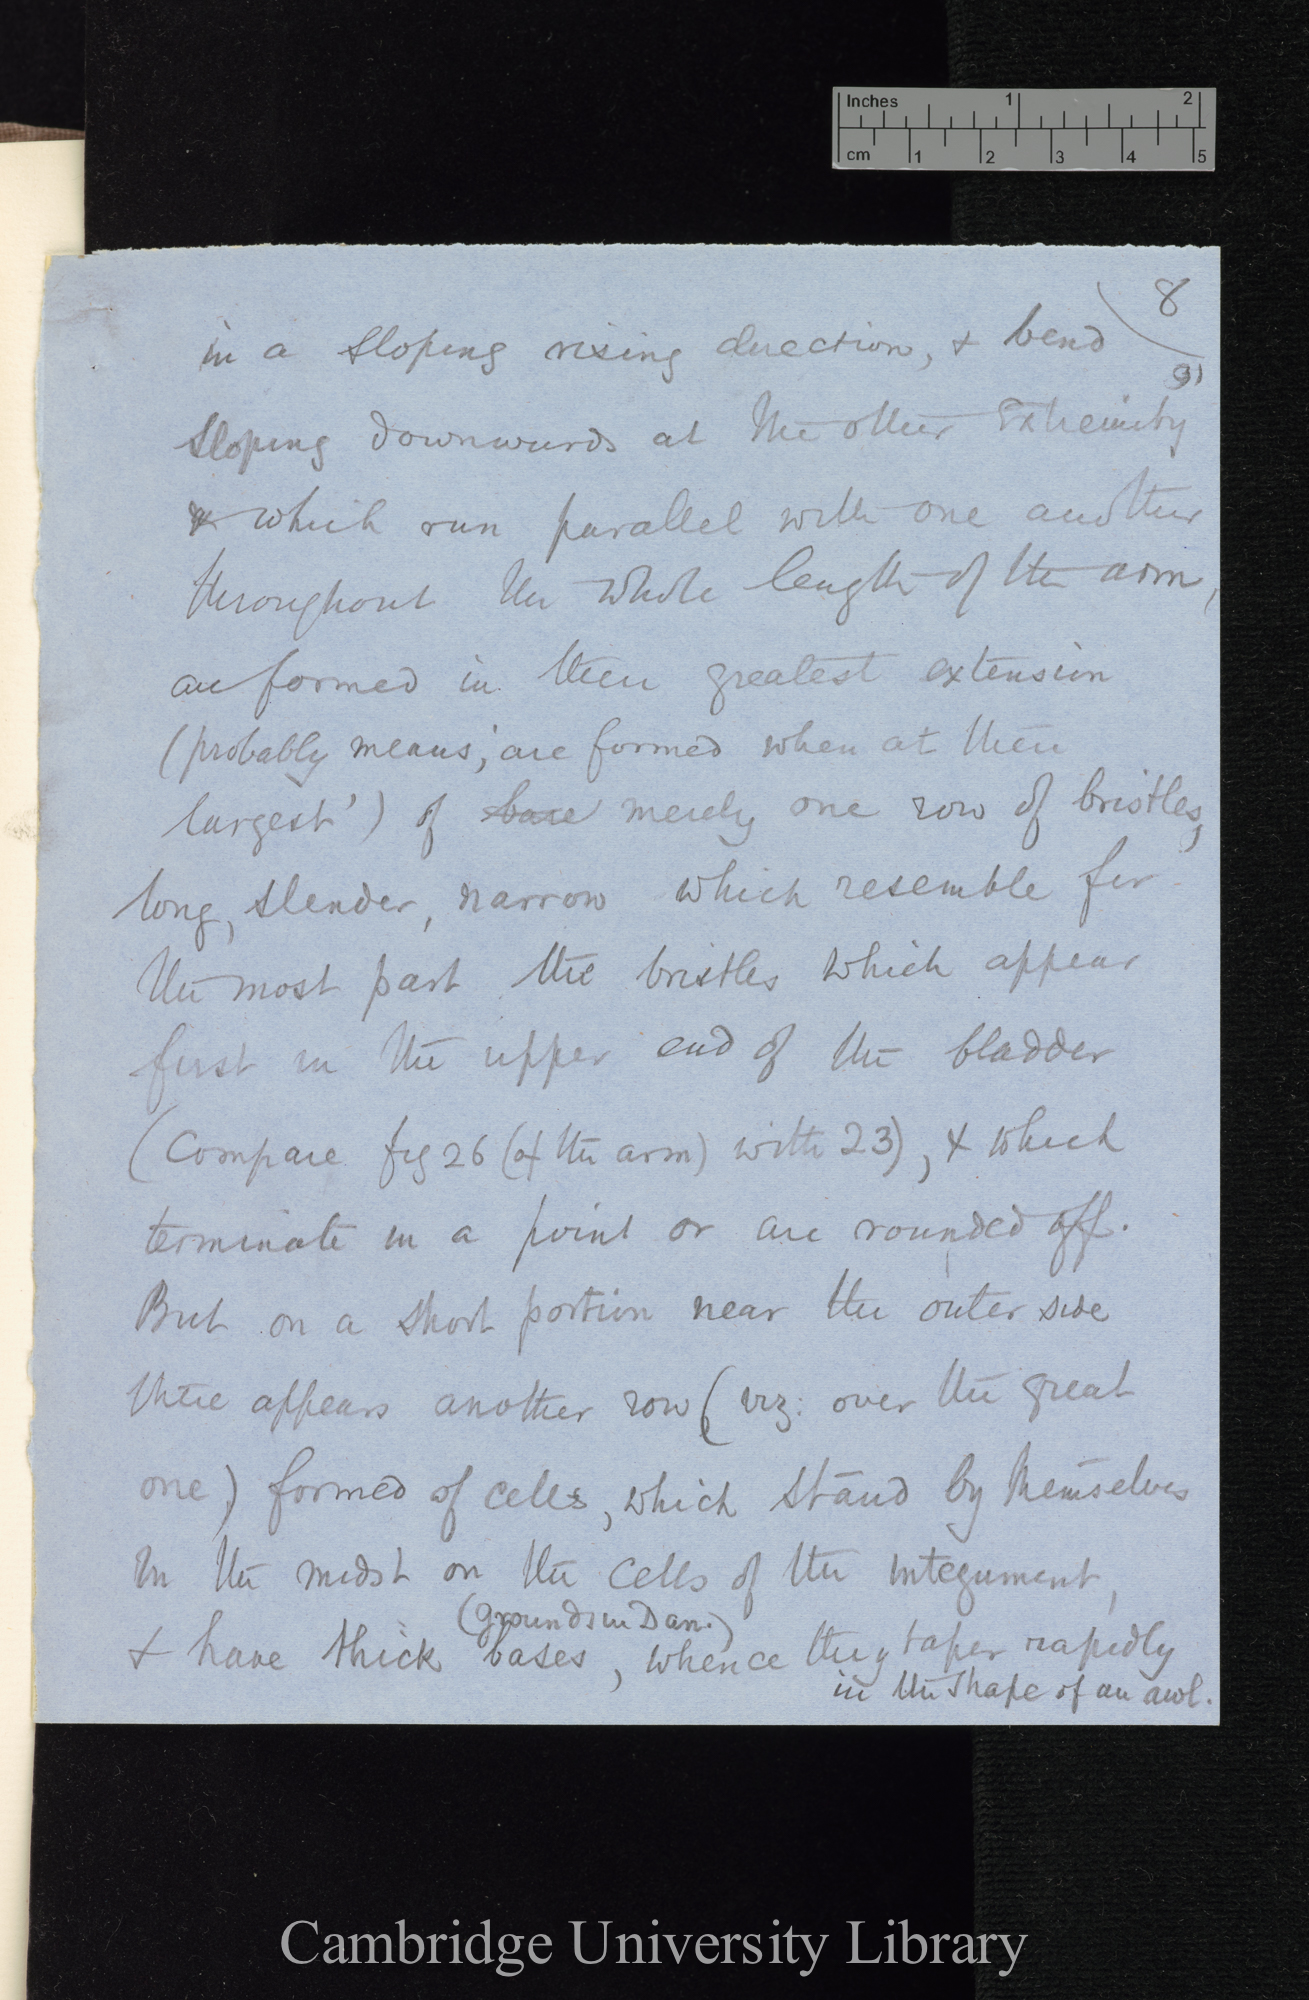 Inches 1 2
cm 1 2 3 4 5
8
91
in a sloping rising direction, & bend
sloping downwards at the other extremity
& which run parallel with one another
throughout the whole length of the arm,
are formed in their greatest extension
(probably means, 'are formed when at their
largest') of bare merely one row of bristles,
long, slender, narrow which resemble for
the most part the bristles which appear
first in the upper end of the bladder
(Compare fig 26 (of the arm) with 23), & which
terminate in a point or are rounded off.
But on a short portion near the outer side
there appears another row (viz: over the great
one) formed of cells, which stand by themselves
in the midst on the cells of the integument,
(grounds in Dan.)
& have thick bases, whence they taper rapidly
in the shape of an awl.
Cambridge University Library